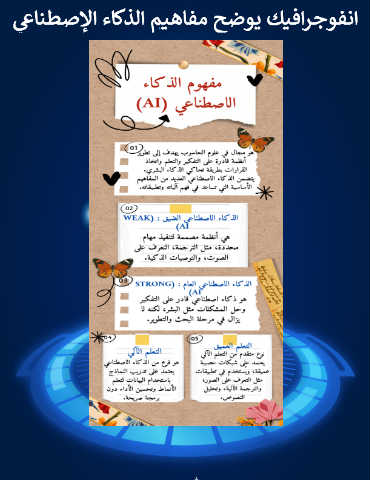 انفوجرافيك يوضح مفاهيم الذكاء الإصطناعي
مفهوم الذكاء
الاصطناعي (AI)
01
هو مجال في علوم الحاسوب يهدف إلى تطوير
أنظمة قادرة على التفكير والتعلم واتخاذ
القرارات بطريقة تحاكي الذكاء البشري.
يتضمن الذكاء الاصطناعي العديد من المفاهيم
الأساسية التي تساعد في فهم آلياته وتطبيقاته.
02
الذكاء الاصطناعي الضيق : (WEAK
AI)
هي أنظمة مصممة لتنفيذ مهام
محددة، مثل الترجمة، التعرف على
الصوت، والتوصيات الذكية.
03
الذكاء الاصطناعي العام : (STRONG
AI)
هو ذكاء اصطناعي قادر على التفكير
وحل المشكلات مثل البشر، لكنه لا
يزال في مرحلة البحث والتطوير.
04
التعلم الآلي
هو فرع من الذكاء الاصطناعي
يعتمد على تدريب النماذج
باستخدام البيانات لتعلم
الأنماط وتحسين الأداء دون
برمجة صريحة.
05
التعلم العميق
نوع متقدم من التعلم الآلي
يعتمد على شبكات عصبية
عميقة، ويستخدم في تطبيقات
مثل التعرف على الصور،
والترجمة الآلية، وتحليل
النصوص.